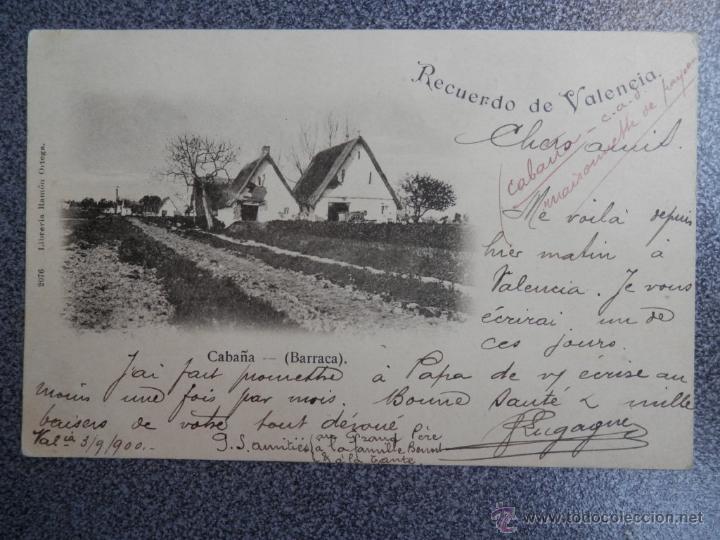 Recuerdo de Valencia.
cabaña - c. a. d.
maisonnette de paysan
2076 Librería Ramón Ortega.
Chers amis.
Me voilà depuis
hier matin à
Valencia. Je vous
écrirai un de
ces jours.
Cabaña — (Barraca).
J'ai fait promettre à Papa de vs écrire au
moins une fois par mois. Bonne santé & mille
baisers de votre tout dévoué
Val^cia 3/9/900.-
P.S. amitiés
au Grand Père
à la famille
& à la Tante
www.todocoleccion.net